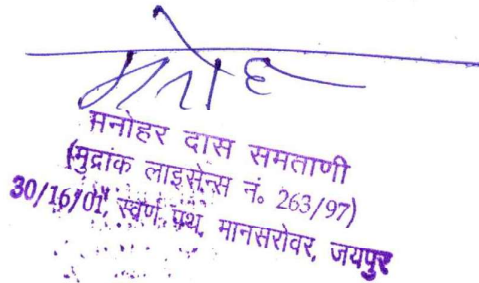 मनोहर दास समताणी
(मुद्रांक लाइसेन्स नं. 263/97)
30/16/01, स्वर्ण पथ, मानसरोवर, जयपुर